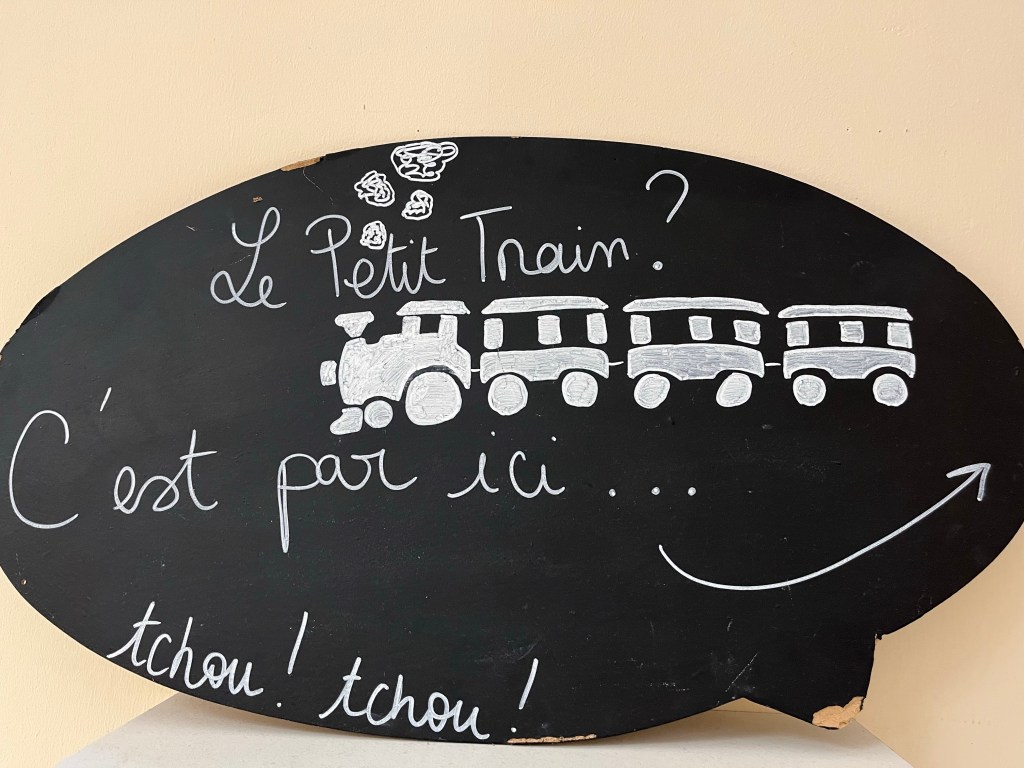 Le Petit Train ?
C'est par ici ...
tchou ! tchou !